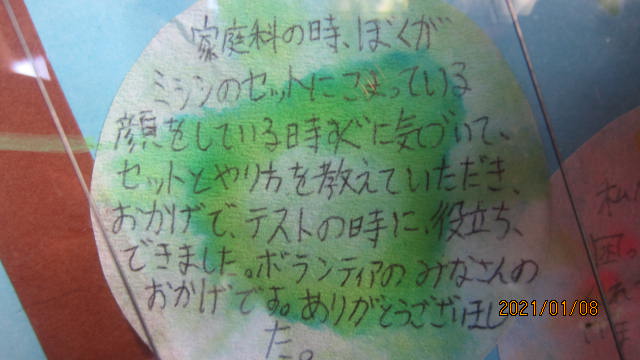 家庭科の時、ぼくが
ミシンのセットにこまっている
顔をしている時すぐに気づいて、
セットとやり方を教えていただき、
おかげで、テストの時に、役立ち、
できました。ボランティアのみなさんの
おかげです。ありがとうございまし
た。
私
困っ
2021/01/08